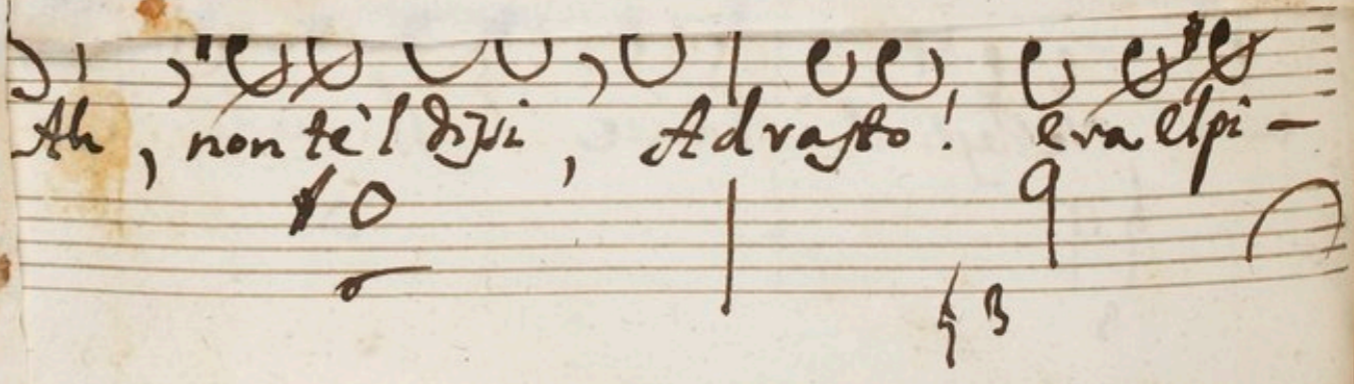 Ah, non te'l dissi, Adrasto! era elpi –
♮ 3